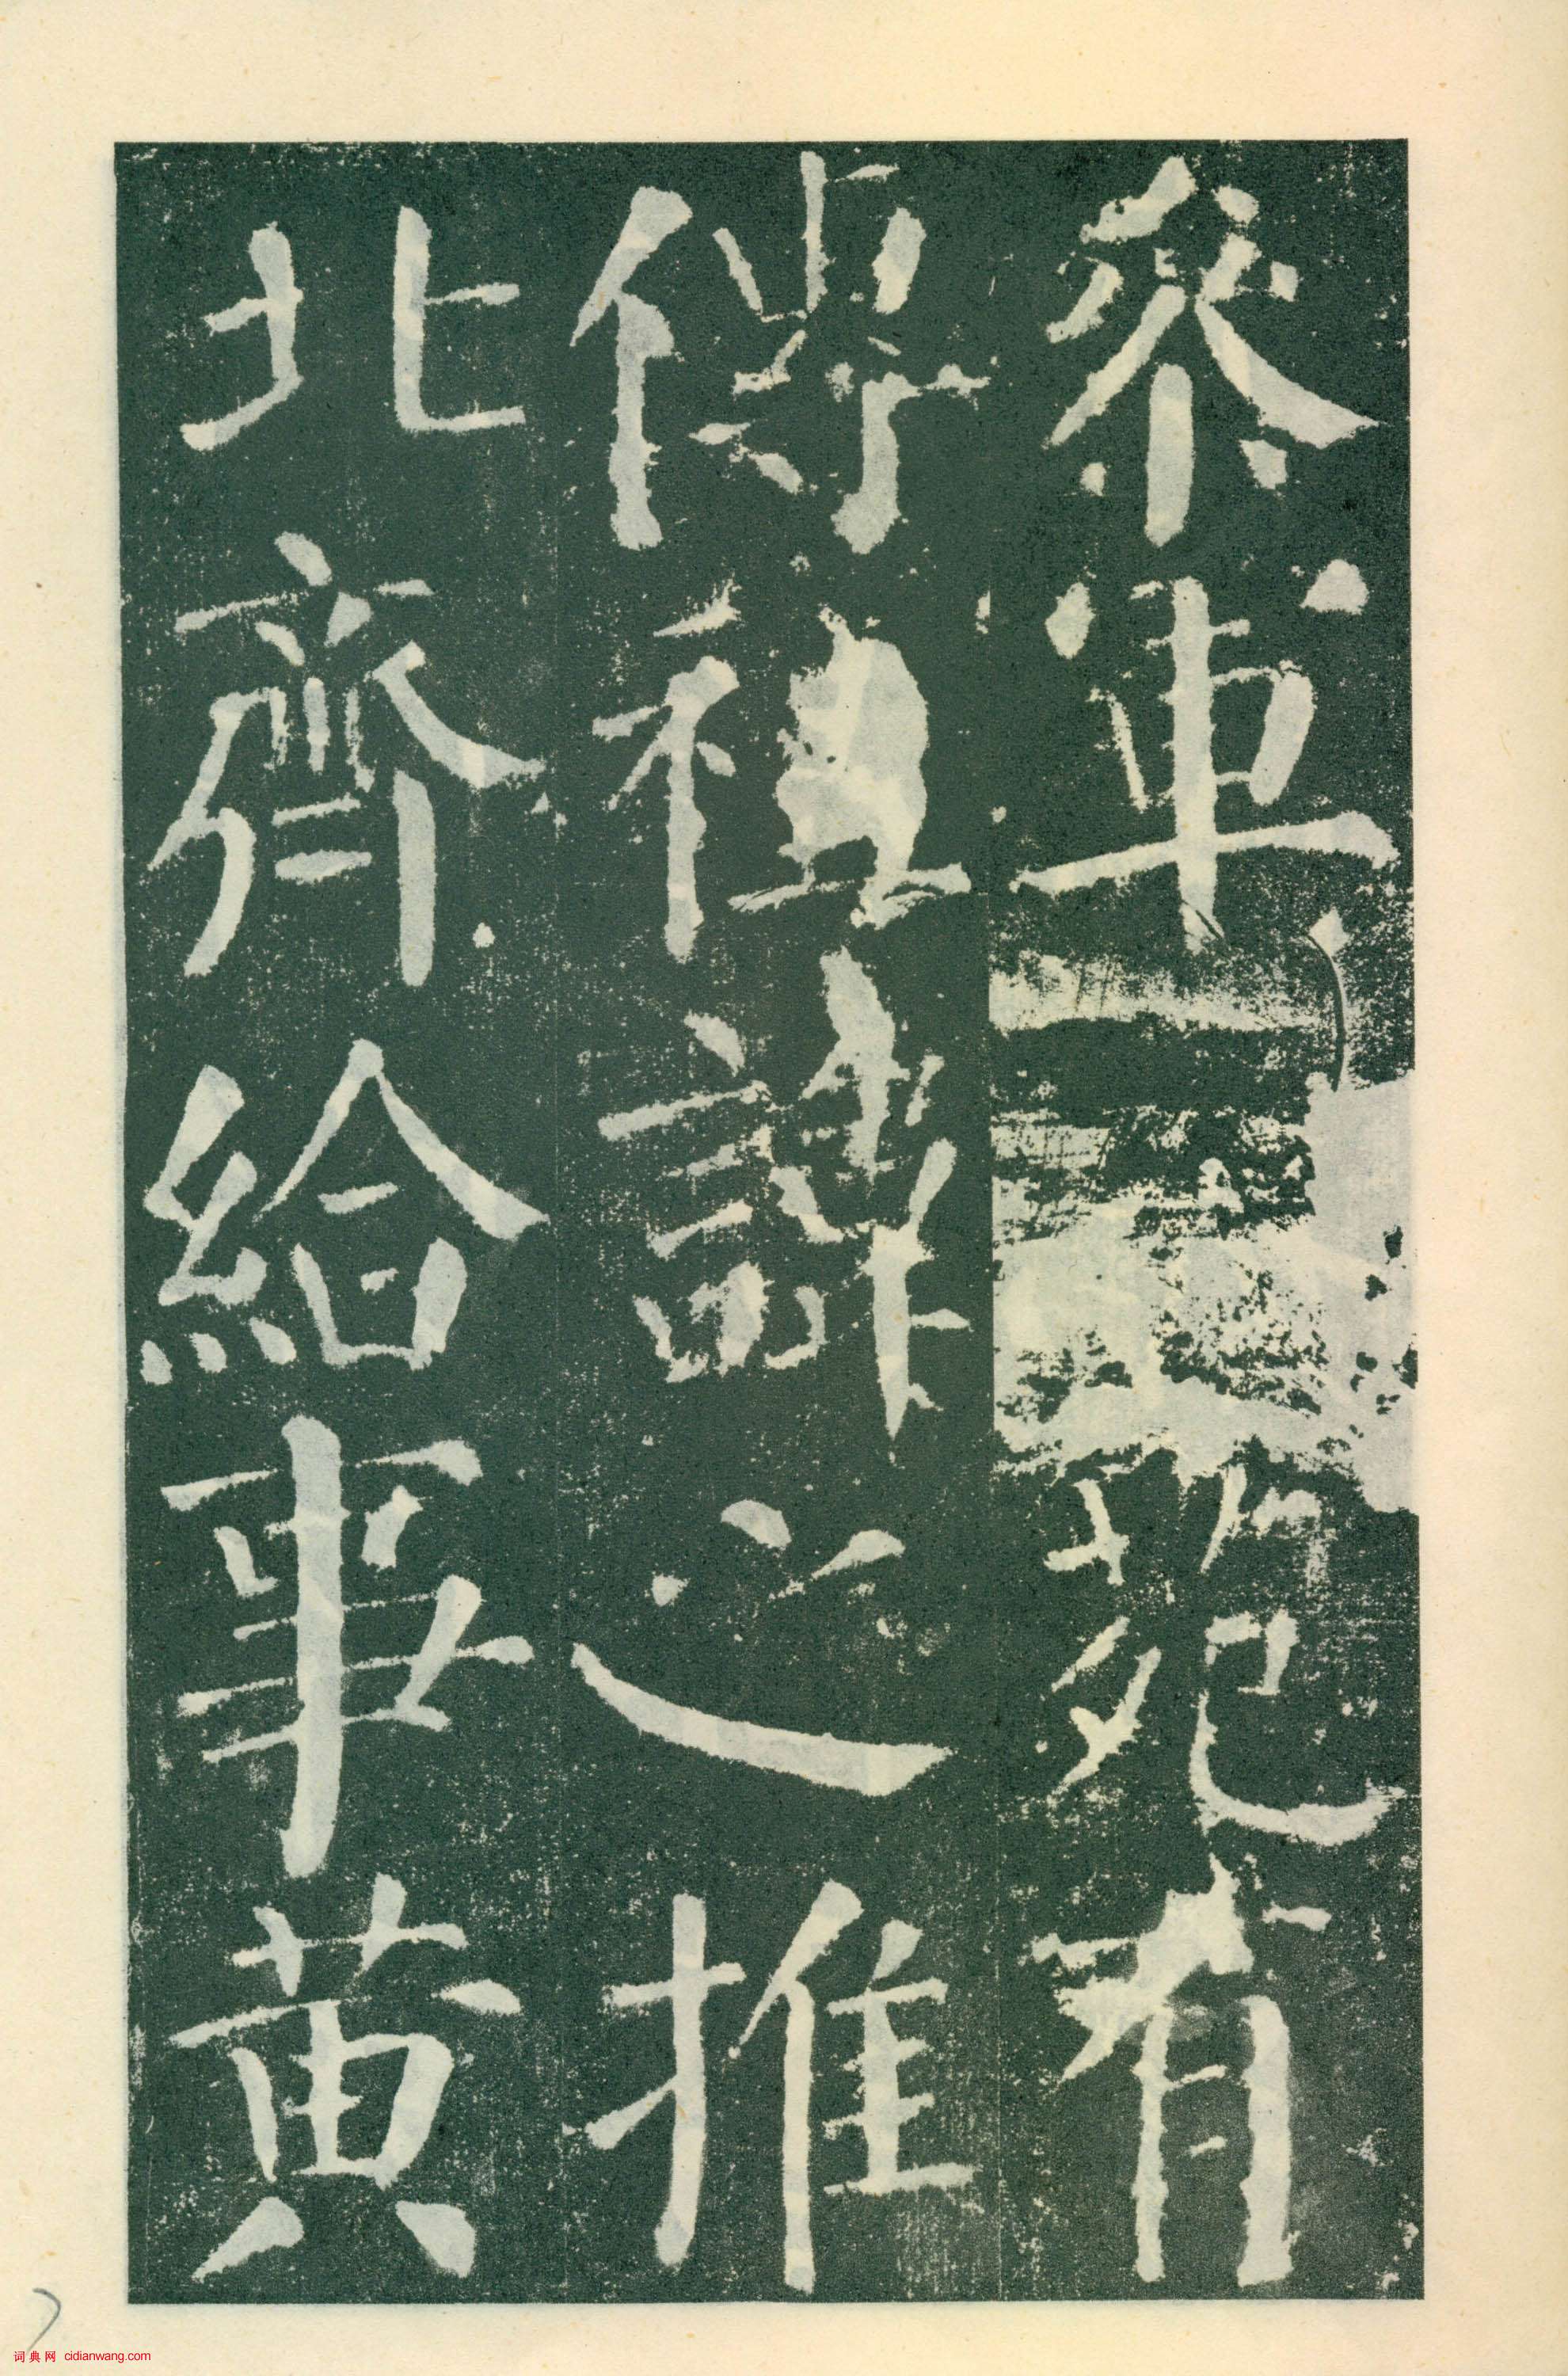 參軍苑有
傳祖諱之推
北齊給事黄
词典网 cidianwang.com